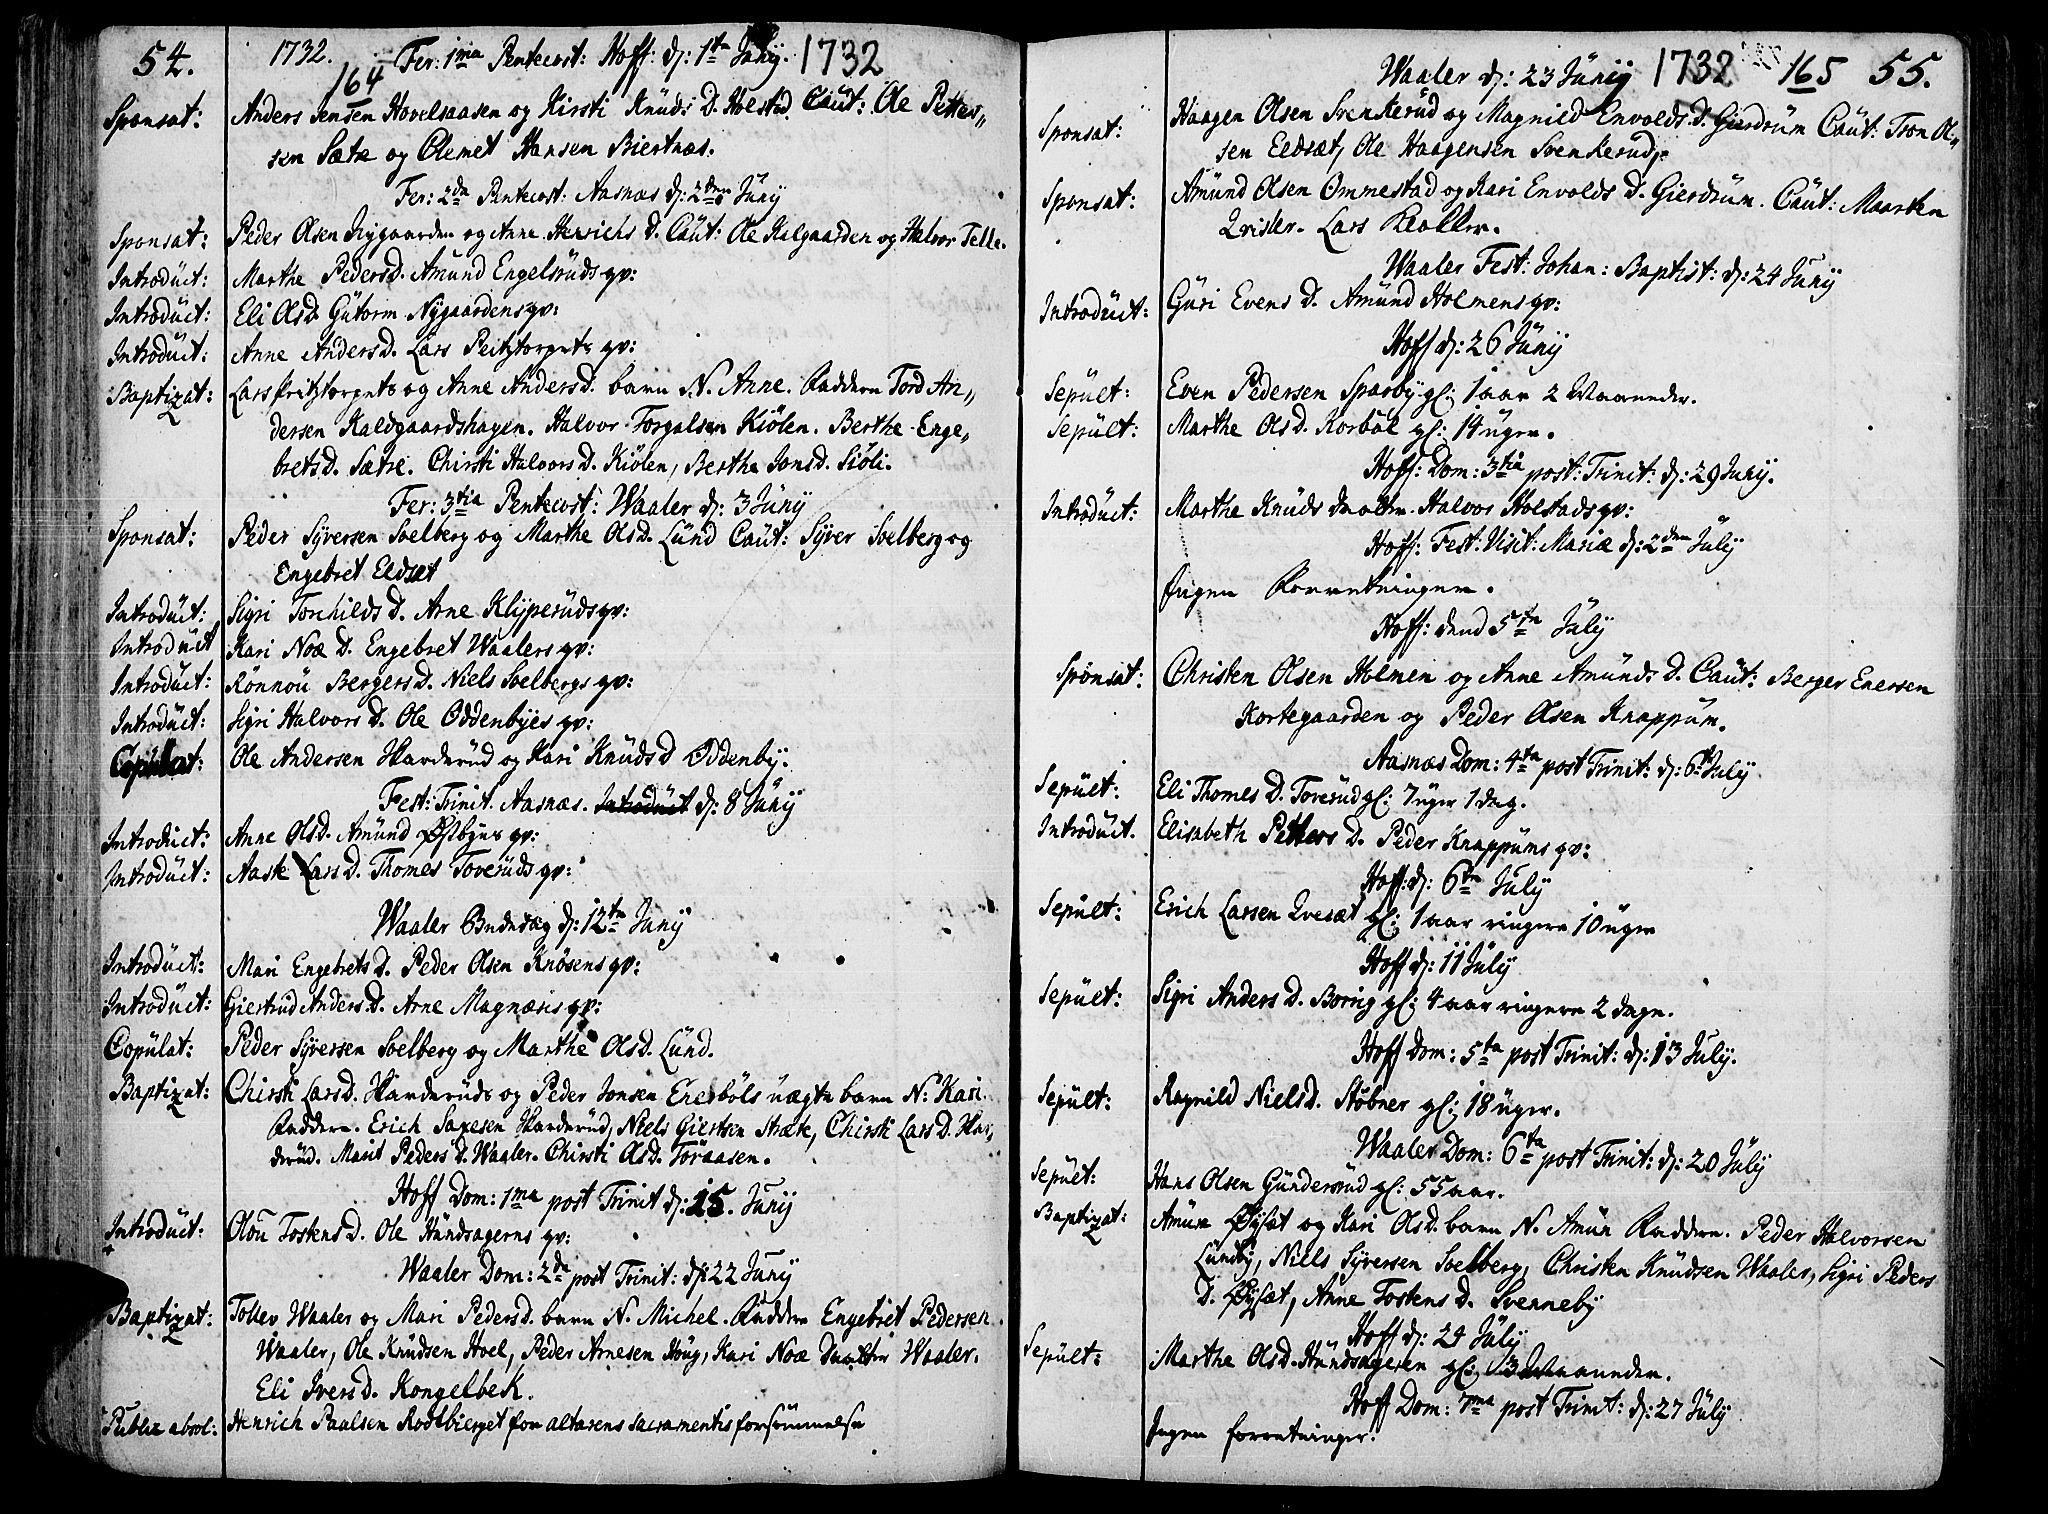 54. 1732. Fer: 1ma Pentecost: Hoff: d: 1te Junij. 1732
164
Sponsat: Anders Jensen Hovelsaasen og Kirsti Knuds D. Holstad. Caut: Ole Petter,,
sen Sætre og Clemet Hansen Biertnæs.
Fer: 2da Pentecost: Aasnæs d: 2den Junij
Sponsat: Peder Olsen Nygaarden og Anne Henrichs D. Caut: Ole Kilgaarden og Halvor Telle.
Introduct: Marthe Pedersd. Amund Engelsruds qv:
Introduct: Eli Olsd. Gutorm Nygaardens qv:
Introduct: Anne Andersd. Lars Peitztorpets qv:
Baptizat: Lars Peitztorpets og Anne Andersd. barn N. Anne. Faddere Tord An,,
dersen Kaldgaardshagen. Halvor Torgalsen Kiölen. Berthe Enge,,
bretsd. Sætre. Chirsti Halvors D. Kiölen, Berthe Jonsd. Siöli.
Fer: 3tia Pentecost: Waaler d: 3 Junij
Sponsat: Peder Syversen Soelberg og Marthe Olsd. Lund Caut: Syver Soelberg og
Engebret Eldsæt
Introduct: Sigri Torchilds D. Arne Klyperuds qv:
Introduct Kari Noæ D. Engebret Waalers qv:
Introduct: Rönnou Bergers D. Niels Soelbergs qv:
Introduct: Sigri Halvors D. Ole Oddenbyes qv:
Copulat: Ole Andersen Harderud og Kari Knuds D Oddenby.
Fest: Trinit. Aasnæs. Introduct d: 8 Junij
Introduct: Anne Olsd. Amund Østbyes qv:
Introduct: Aaste Lars D. Thomes Toveruds qv:
Waaler Bededag d: 12te Junij
Introduct: Mari Engebrets D. Peder Olsen Knösens qv:
Introduct: Giertrud Anders D. Arne Magnæsis qv:
Copulat: Peder Syversen Soelberg og Marthe Olsd. Lund.
Baptizat: Chirsti Larsd. Harderuds og Peder Jonsen Enesböls uægte barn N: Kari.
Faddere. Erich Saxesen Harderud, Niels Giertsen Stræte, Chirsti Lars D. Har,,
derud. Marit Peders D. Waaler. Chirsti Olsd. Toraasen.
Hoff Dom: 1ma post Trinit d: 15. Junij
Introduct: Olou Tostens D. Ole Hundsagerns qv:
Waaler Dom: 2da post Trinit: d: 22 Junij
Baptizat: Tollev Waaler og Mari Pedersd. barn N. Michel. Faddere Engebret Pedersen
Waaler, Ole Knudsen Hoel, Peder Arnesen Houg, Kari Noæ Daatter Waaler.
Eli Ivers D. Kongelbek.
Publiæ absol: Henrich Paalsen Rodtbierget for altarens Sacramentis forsömmelse
Waaler d: 23 Junij 1732 165 55.
Sponsat: Haagen Olsen Svenkerud og Magnild Envolds D. Gierdrum Caut: Tron Ol,,
sen Eldsæt, Ole Haagensen Svenkerud.
Sponsat: Amund Olsen Ommestad og Kari Envolds D. Gierdrum. Caut: Maarten
Qvisler. Lars
Waaler Fest: Johan: Baptist: d: 24 Junij
Introduct: Guri Evens D. Amund Holmens qv:
Hoff d: 26 Junij
Sepult: Even Pedersen Sparby gl: 1 aar 2 Maaneder.
Sepult: Marthe Olsd. Korböl gl: 14 uger.
Hoff: Dom: 3tia post: Trinit: d: 29 Junij.
Introduct: Marthe Knuds Daatter Halvor Holstads qv:
Hoff: Fest: Visit: Mariæ d: 2den July
Ingen Forretninger.
Hoff: dend 5te July
Sponsat: Christen Olsen Holmen og Anne Amunds D. Caut: Berger Enersen
Kortegaarden og Peder Olsen Knappum.
Aasnæs Dom: 4ta post Trinit: d: 6te July
Sepult: Eli Thomes D. Toverud gl: 7 uger 1 dag.
Introduct. Elisabeth Petters D. Peder Knappums qv:
Hoff: d: 6te July
Sepult: Erich Larsen Qvesæt gl: 1 aar ringere 10 uger
Hoff d: 11 July
Sepult: Sigri Anders D. Borrig gl: 4 aar ringere 2 dage.
Hoff Dom: 5ta post Trinit: d: 13 July.
Sepult: Ragnild Nielsd. Stöbner gl: 18 uger.
Waaler Dom: 6ta post Trinit: d: 20 July
Sepult: Hans Olsen Gundersrud gl: 55 aar.
Baptizat: Amun Øysæt og Kari Olsd. barn N. Amun Faddere. Peder Halvorsen
Lundby, Niels Syversen Soelberg, Christen Knudsen Waaler, Sigri Peders
D. Øysæt, Anne Tostens D. Svenneby
Hoff d: 24 July
Sepult: Marthe Olsd. Hundsageren gl: 3 Maaneder.
Hoff Dom: 7ma post Trinit: d: 27 July
Ingen forretninger.